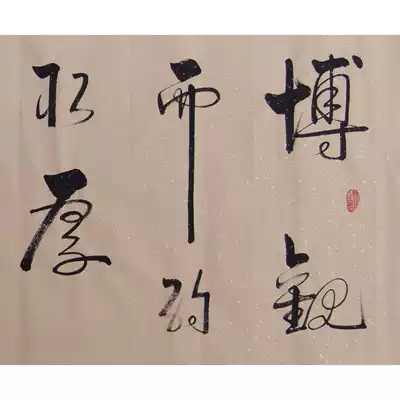 博觀
而約
取厚